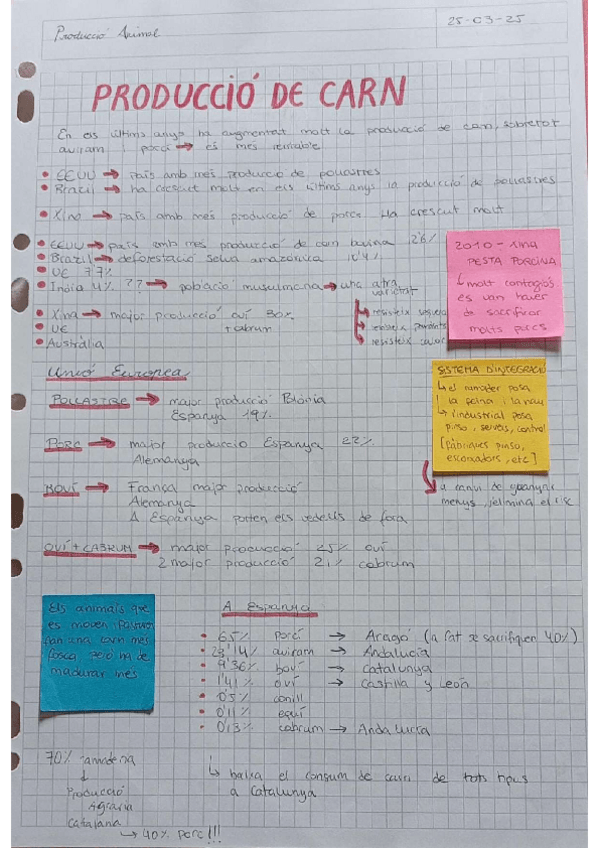 Producció Animal
25-03-25
PRODUCCIÓ DE CARN
En els últims anys ha augmentat molt la producció de carn, sobretot
aviram i porcí → és més rentable
• EEUU → país amb més producció de pollastres
• Brazil → ha crescut molt en els últims anys la producció de pollastres
• Xina → país amb més producció de porcs. Ha crescut molt
• EEUU → país amb més producció de carn bovina 12'6%
• Brazil → deforestació selva amazónica 10'4%
• UE 7'7%
• India 4% ?? → població musulmana → una altra
varietat
↳ resisteix
↳ resisteix
↳ resisteix calor
• Xina → major producció oví 30%
• UE + cabrum
• Austràlia
2010 - Xina
PESTA PORCINA
↳ molt contagiós
es van haver
de sacrificar
molts porcs
Unió Europea
POLLASTRE → major producció Polònia
Espanya 19%
PORC → major producció Espanya 22%
Alemanya
BOVÍ → França major producció
Alemanya
A Espanya porten els vedells de fora
OVÍ + CABRUM → major producció 25% oví
2 major producció 21% cabrum
SISTEMA D'INTEGRACIÓ
↳ el ramader posa
la feina i la nau
↳ l'industrial posa
pinso, serveis, control
[fàbriques pinso,
escorxadors, etc]
↓ a canvi de guanyar
menys, elimina el risc
Els animals que
es mouen i pasturen
fan una carn més
fosca però ha de
madurar més
A Espanya
• 65% porcí → Aragó (a Cat se sacrifiquen 40%)
• 29'14% aviram → Andalucía
• 9'36% boví → Catalunya
• 1'41% oví → Castilla y León
• 0'5% conill
• 0'11% equí
• 0'13% cabrum → Andalucía
↳ baixa el consum de carn de tots tipus
a Catalunya
70% ramaderia
↓
Producció
Agrària
Catalana
↳ 40% porc!!!